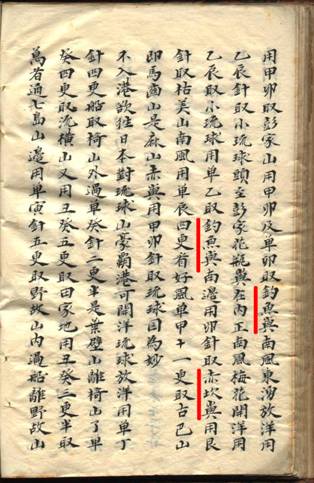 用甲卯取彭家山用甲卯及單卯取釣魚嶼南風東湧放洋用
乙辰針取小琉球頭至彭家花瓶嶼在內正南風梅花開洋用
乙辰取小琉球用單乙取釣魚嶼南邊用卯針取赤坎嶼用艮
針取枯美山南風用單辰四更看好風單甲十一更取古巴山
即馬齒山是麻山赤嶼用甲卯針取琉球國為妙
不入港欲往日本對琉球山豪霸港可開洋琉球放洋用單丁
針四更船取椅山外過單癸針二更半是葉壁山離椅山了單
癸四更取流橫山又用丑癸五更取田家地用丑癸三更半取
萬者通七島山邊用單寅針五更取野故山內過船離野故山